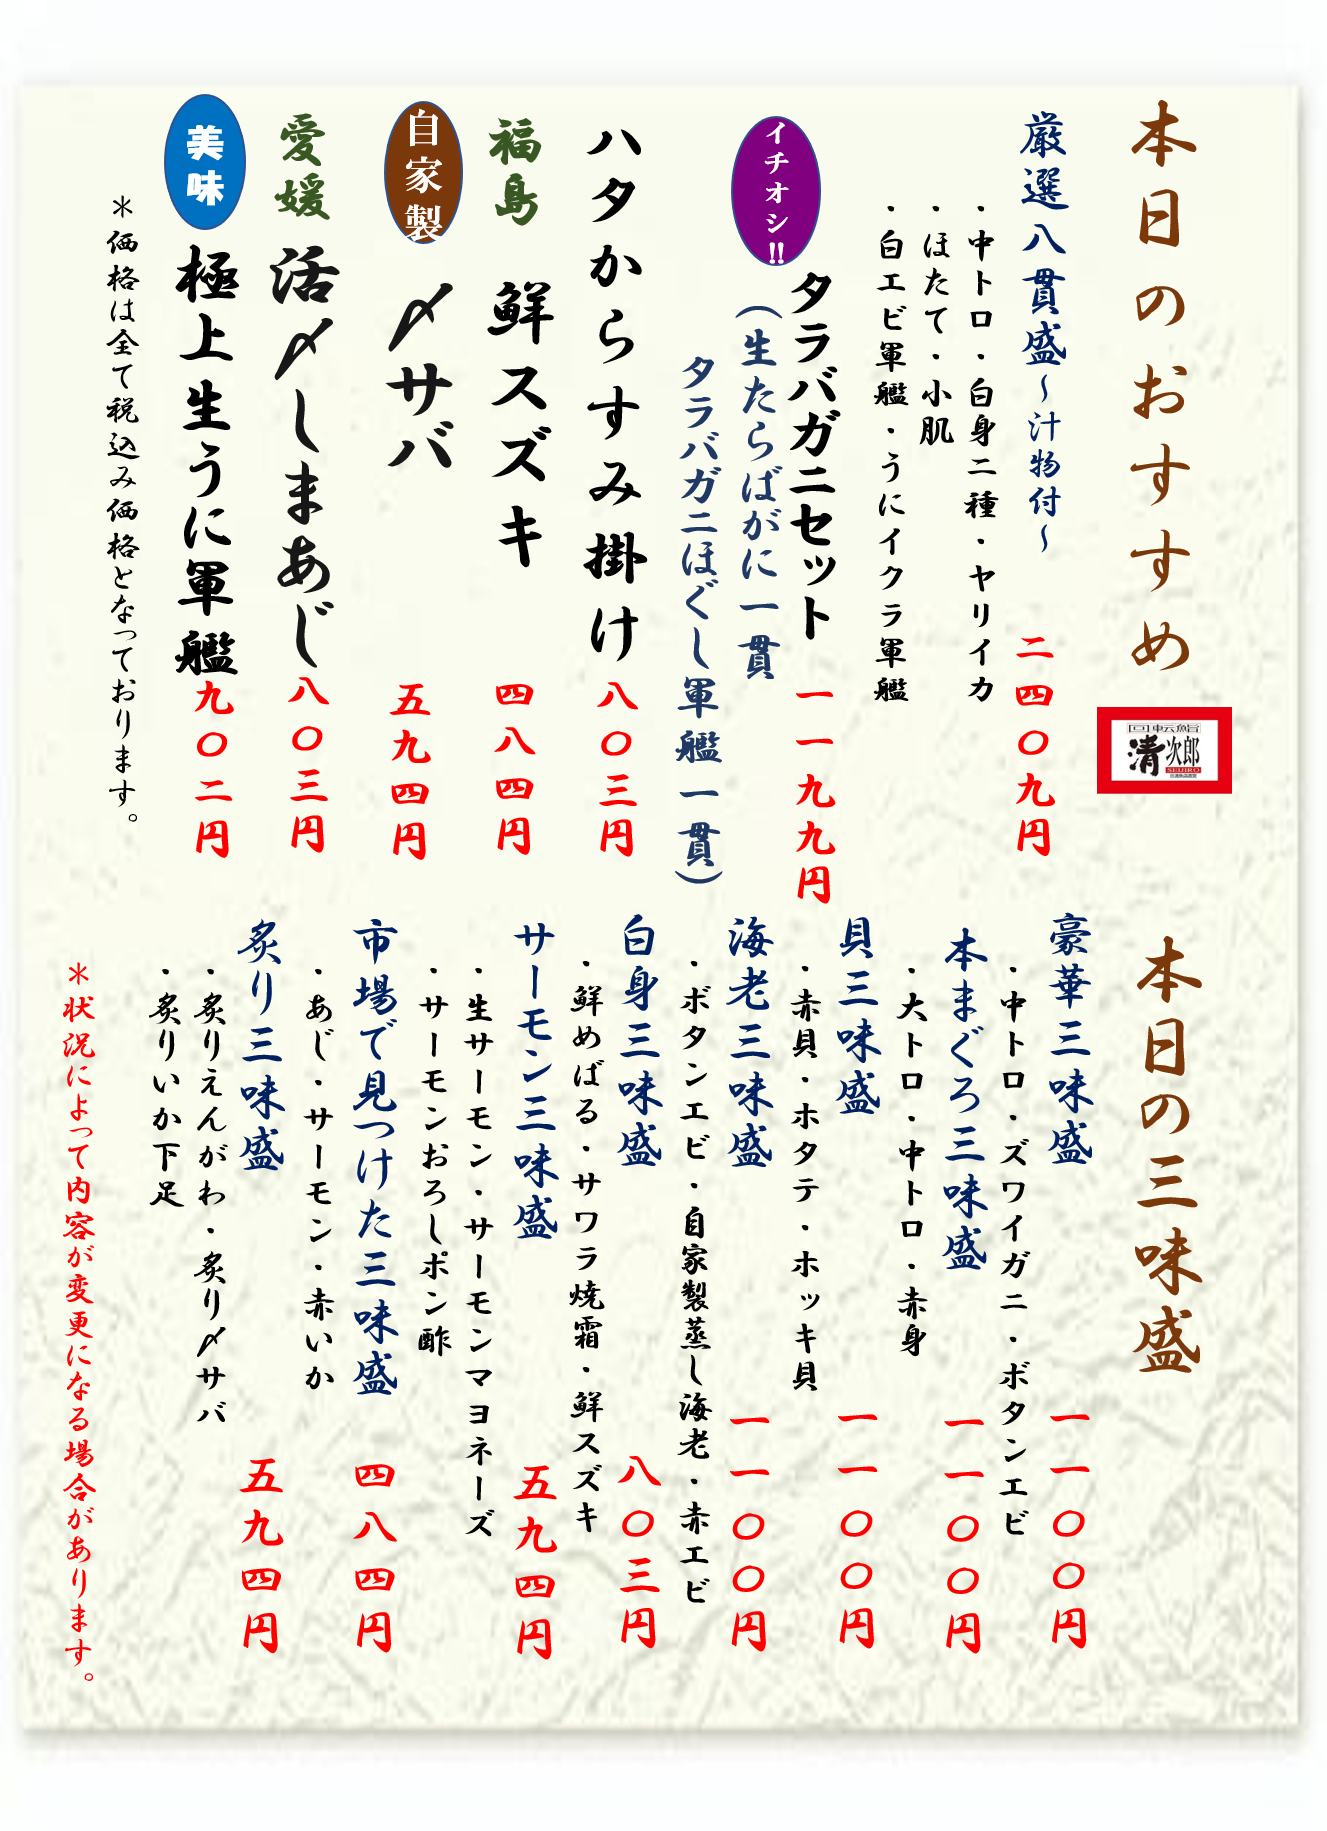 本日のおすすめ
清次郎
SEIJIRO
厳選八貫盛～汁物付～
二四〇九円
・中トロ・白身二種・ヤリイカ
・ほたて・小肌
・白エビ軍艦・うにイクラ軍艦
イチオシ!!
タラバガニセット
一一九九円
（生たらばがに一貫
タラバガニほぐし軍艦一貫）
ハタからすみ掛け
八〇三円
福島
鮮スズキ
四八四円
自家製
〆サバ
五九四円
愛媛
活〆しまあじ
八〇三円
美味
極上生うに軍艦
九〇二円
＊価格は全て税込み価格となっております。
本日の三味盛
豪華三味盛
一一〇〇円
・中トロ・ズワイガニ・ボタンエビ
本まぐろ三味盛
一一〇〇円
・大トロ・中トロ・赤身
貝三味盛
一一〇〇円
・赤貝・ホタテ・ホッキ貝
海老三味盛
一一〇〇円
・ボタンエビ・自家製蒸し海老・赤エビ
白身三味盛
八〇三円
・鮮めばる・サワラ焼霜・鮮スズキ
サーモン三味盛
五九四円
・生サーモン・サーモンマヨネーズ
・サーモンおろしポン酢
市場で見つけた三味盛
四八四円
・あじ・サーモン・赤いか
炙り三味盛
五九四円
・炙りえんがわ・炙り〆サバ
・炙りいか下足
＊状況によって内容が変更になる場合があります。